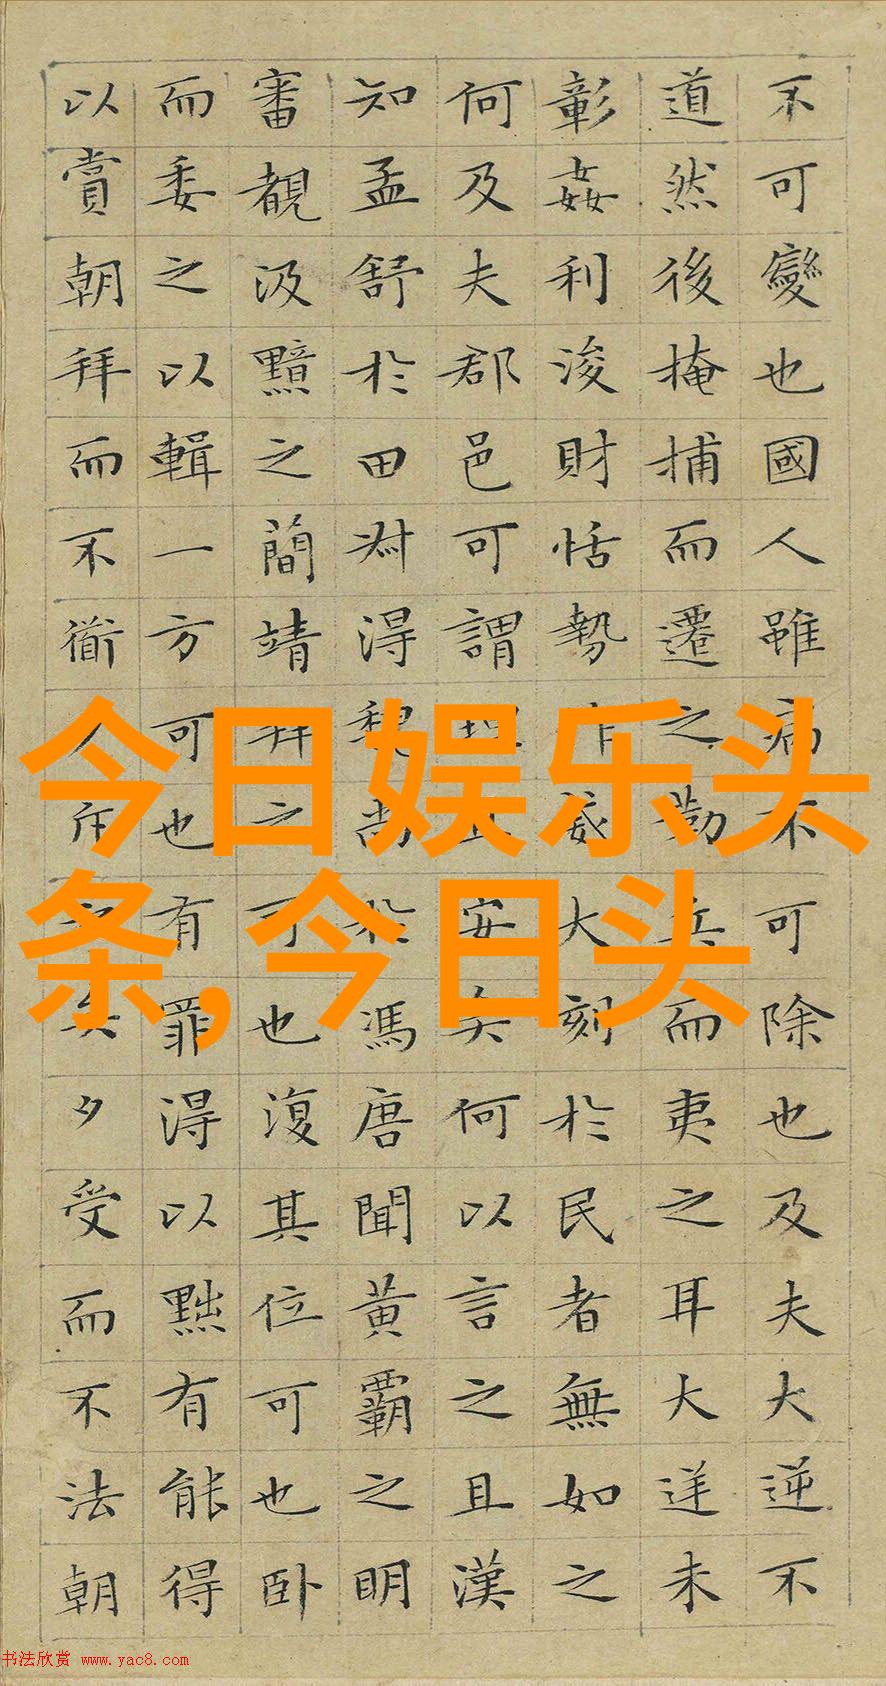 不可變也國人雖病不可除也及夫大逆不
道然後掩捕而遷之勒兵而夷之耳大逆未
彰姦利浚財恬勢作威大刻於民者無如之
何及夫郡邑可謂理且安矣何以言之且漢
知孟舒於田叔得魏尚於馮唐聞黃霸之明
審覩汲黯之簡靖拜之可也復其位可也卧
而委之以輯一方可也有罪得以黜有能得
以賞朝拜而不衜斥矣夕受而不法朝
今日娱乐头
条,今日头
书法欣赏 www.yac8.com